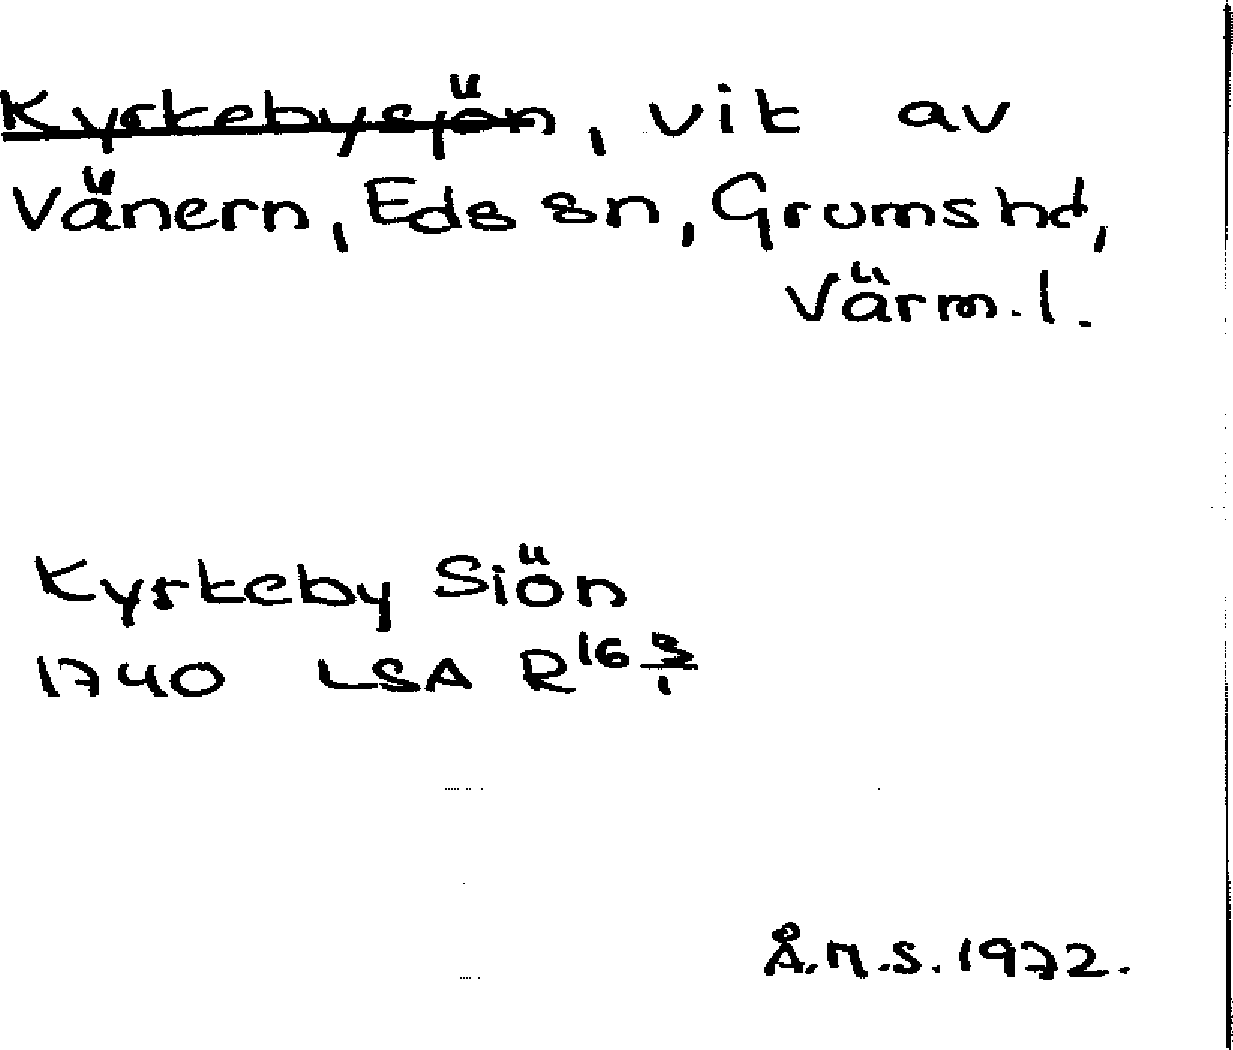 Kyrkebysjön, vik av
Vänern, Eds sn, Grums hd,
Värm. l.
Kyrkeby Siön
1740 LSA R16 3/1
Å.H.S. 1972.